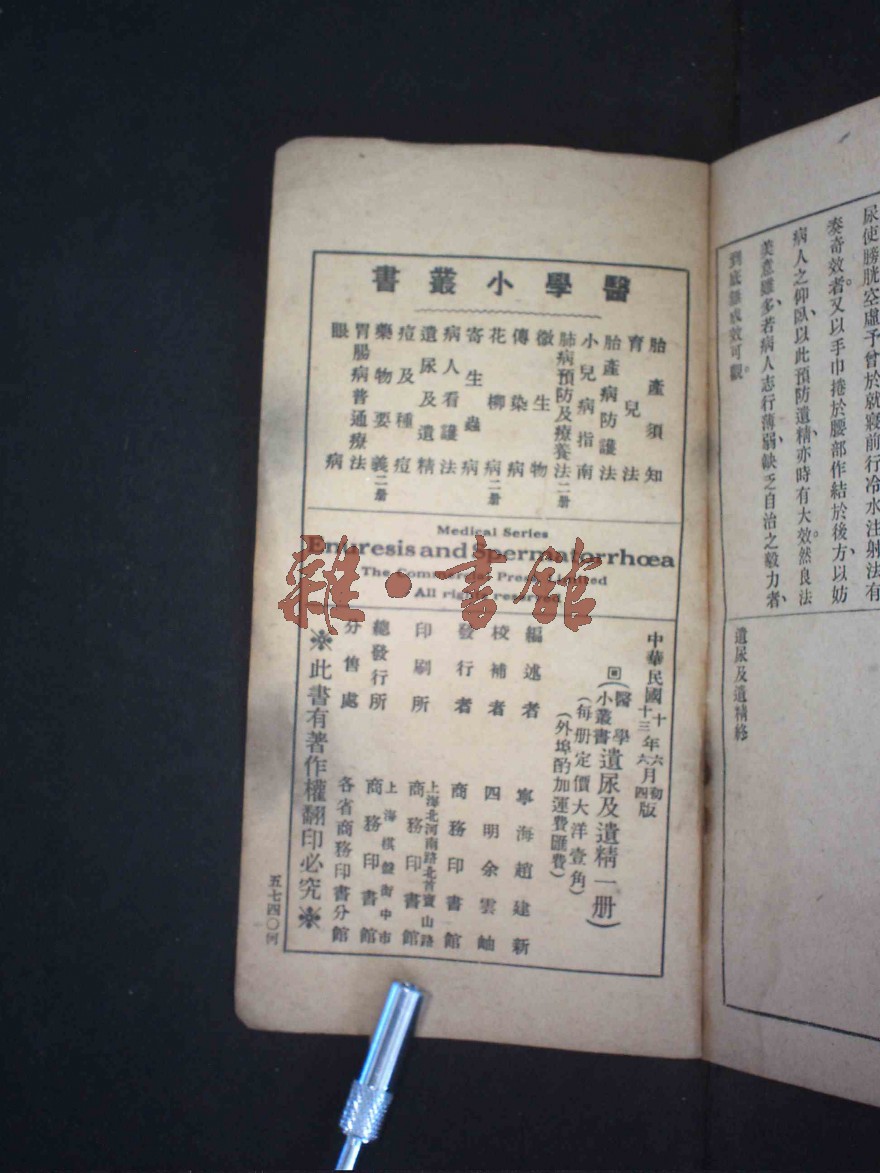 尿使膀胱空虛予曾於就寢前行冷水注射法有
奏奇效者。又以手巾捲於腰部作結於後方、以妨
病人之仰臥、以此預防遺精、亦時有大效。然良法
美意雖多、若病人志行薄弱、缺乏自治之毅力者、
到底無成效可觀。
遺尿及遺精終
醫學小叢書
胎產須知
育兒法
胎產病防護法
小兒病指南
肺病預防及療養法二册
微生物
傳染病
花柳病二册
寄生蟲病
病人看護法
遺尿及遺精
痘及種痘
藥物要義二册
胃腸病普通療法
眼病
Medical Series
Enuresis and Spermatorrhœa
The Commercial Press, Limited
All rights reserved
中華民國十年六月初版
十三年六月四版
回(醫學小叢書遺尿及遺精一册)
(每册定價大洋壹角)
(外埠酌加運費匯費)
編述者 寧海趙建新
校補者 四明余雲岫
發行者 商務印書館
印刷所 上海北河南路北首寶山路 商務印書館
總發行所 上海棋盤街中市 商務印書館
分售處 各省商務印書分館
※此書有著作權翻印必究※
五七四〇河
雜·書館